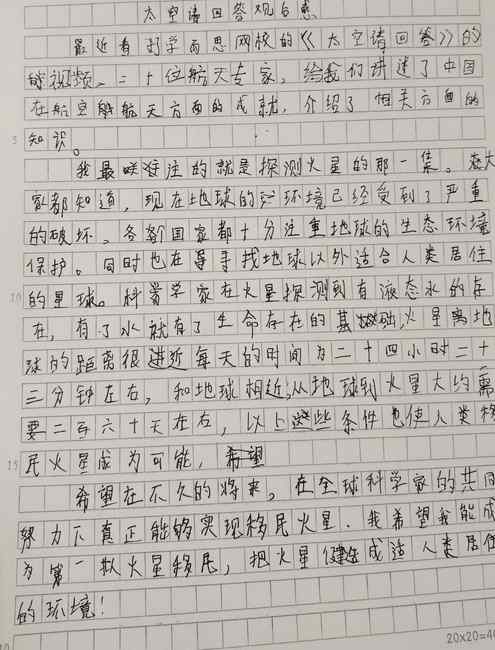 太空请回答观后感
最近看了学而思网校的《太空请回答》的
视频。二十位航天专家，给我们讲述了中国
在航空航天方面的成就，介绍了相关方面的
5 知识。
我最关注的就是探测火星的那一集。大
家都知道，现在地球的环境已经受到了严重
的破坏。各国家都十分注重地球的生态环境
保护。同时也在寻找地球以外适合人类居住
10 的星球。科学家在火星探测到有液态水的存
在，有了水就有了生命存在的基础，火星离地
球的距离很近每天的时间为二十四小时三十
三分钟左右，和地球相近，从地球到火星大约需
要二百六十天左右，以上这些条件也使人类移
15 民火星成为可能，希望
希望在不久的将来，在全球科学家的共同
努力下真正能够实现移民火星．我希望我能成
为第一批火星移民，把火星建造成适人类居住
的环境！
20x20=40